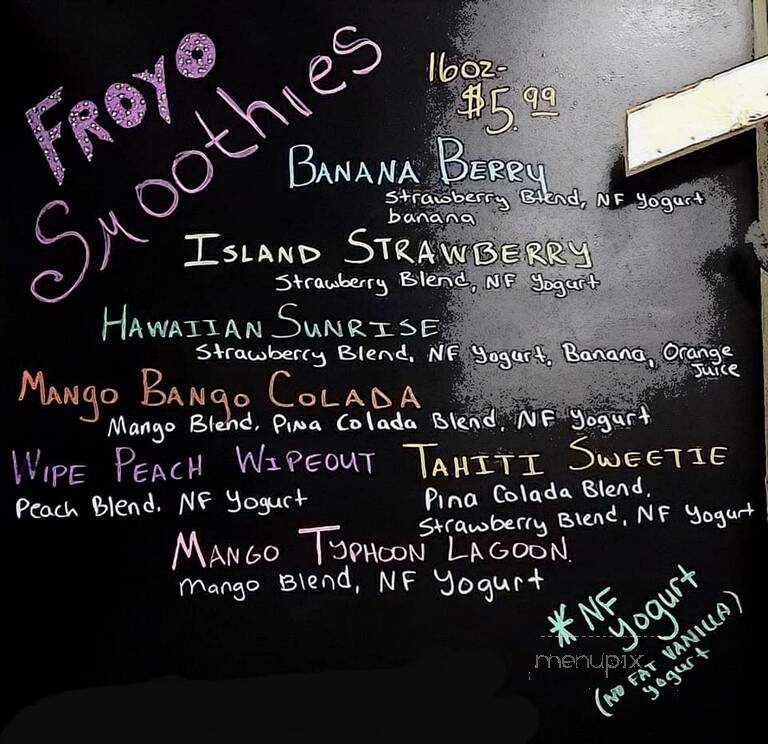 FROYO
Smoothies
16oz-
$5.99
BANANA BERRY
Strawberry Blend, NF Yogurt
banana
ISLAND STRAWBERRY
Strawberry Blend, NF Yogurt
HAWAIIAN SUNRISE
Strawberry Blend, NF Yogurt, Banana, Orange
Juice
MANGO BANGO COLADA
Mango Blend, Pina Colada Blend, NF Yogurt
WIPE PEACH WIPEOUT
Peach Blend, NF Yogurt
TAHITI SWEETIE
Pina Colada Blend,
Strawberry Blend, NF Yogurt
MANGO TYPHOON LAGOON
Mango Blend, NF Yogurt
*NF
Yogurt
(NO FAT VANILLA)
yogurt
menupix